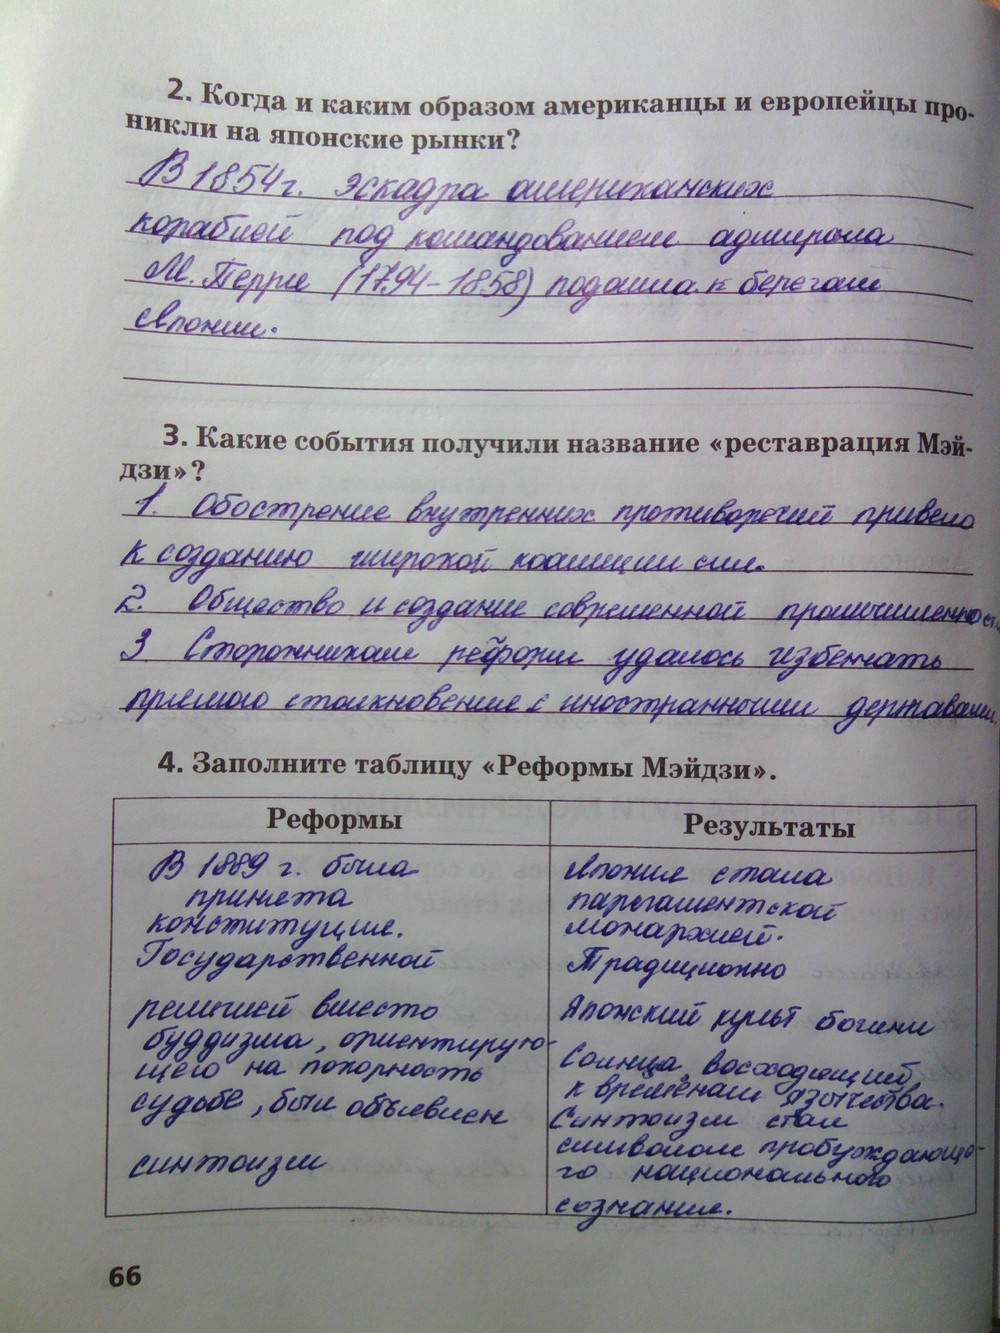 2. Когда и каким образом американцы и европейцы про-
никли на японские рынки?
В 1854 г. эскадра американских
кораблей под командованием адмирала
М. Перри (1794-1858) подошла к берегам
Японии.
3. Какие события получили название «реставрация Мэй-
дзи»?
1. Обострение внутренних противоречий привело
к созданию широкой коалиции сил.
2. Общество и создание современной промышленности
3 Сторонникам реформ удалось избежать
прямого столкновения с иностранными державами.
4. Заполните таблицу «Реформы Мэйдзи».
Реформы
Результаты
В 1889 г. была
принята
конституция.
Государственной
религией вместо
буддизма, ориентирую-
щего на покорность
судьбе, был объявлен
синтоизм
Япония стала
парламентской
монархией.
Традиционно
Японский культ богини
Солнца, восходящий
к временам язычества.
Синтоизм стал
символом пробуждающе-
го национального
сознания.
66